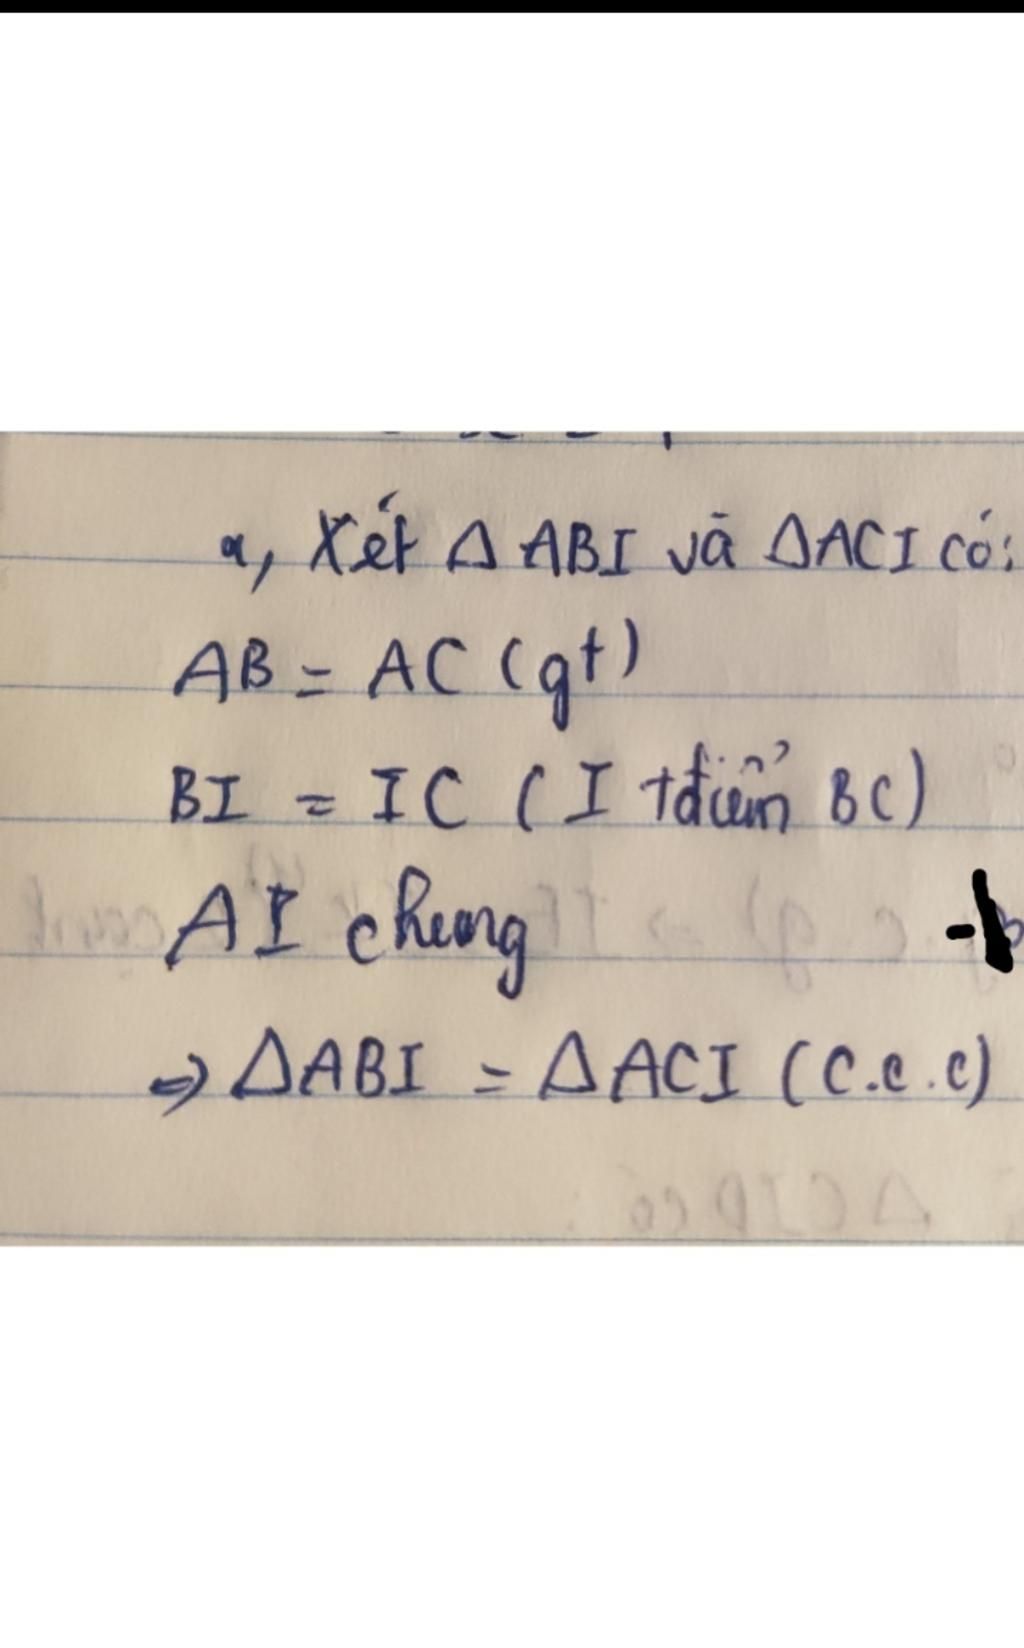 a, Xét Δ ABI và ΔACI có:
AB = AC (gt)
BI = IC ( I tđiểm BC)
AI chung
=> ΔABI = ΔACI (c.c.c)